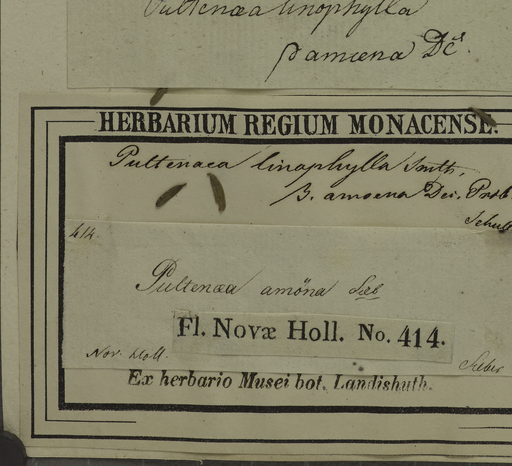 Pultenæa linophylla
β amœna DC.
HERBARIUM REGIUM MONACENSE.
Pultenaea linophylla Smth.
β. amoena Dec. Prdr.
Schult
414.
Pultenæa amöna Sieb
Fl. Novæ Holl. No. 414.
Nov. Holl. Sieber
Ex herbario Musei bot. Landishuth.